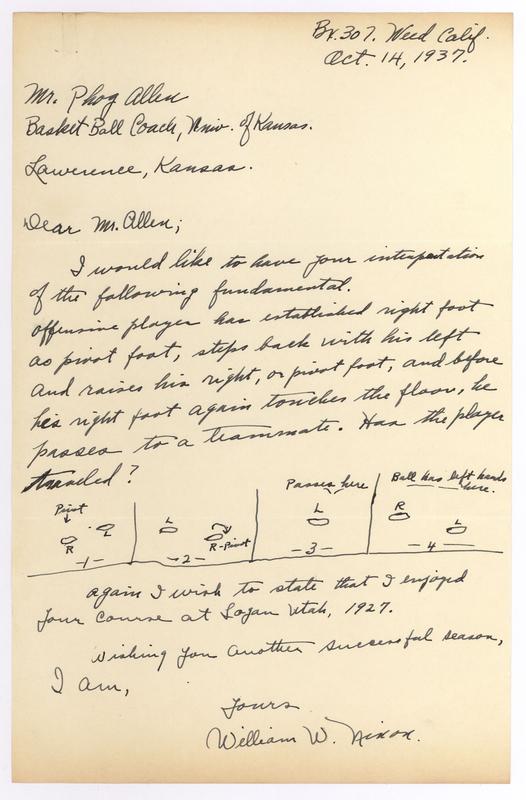 Bx. 307. Weed Calif.
Oct. 14, 1937.
Mr. Phog Allen
Basket Ball Coach, Univ. of Kansas.
Lawerence, Kansas.
Dear Mr. Allen;
I would like to have your interpertation
of the following fundamental.
Offensive player has established right foot
as pivot foot, steps back with his left
and raises his right, or pivot foot, and before
his right foot again touches the floor, he
passes to a teammate. Has the player
traveled?
Pivot
L
R
-1-
L
R-Pivot
-2-
Passes here
L
-3-
Ball has left hands
here.
R
L
-4-
Again I wish to state that I enjoyed
your course at Logan Utah, 1927.
Wishing you another successful season,
I am,
Yours
William W. Nixon.